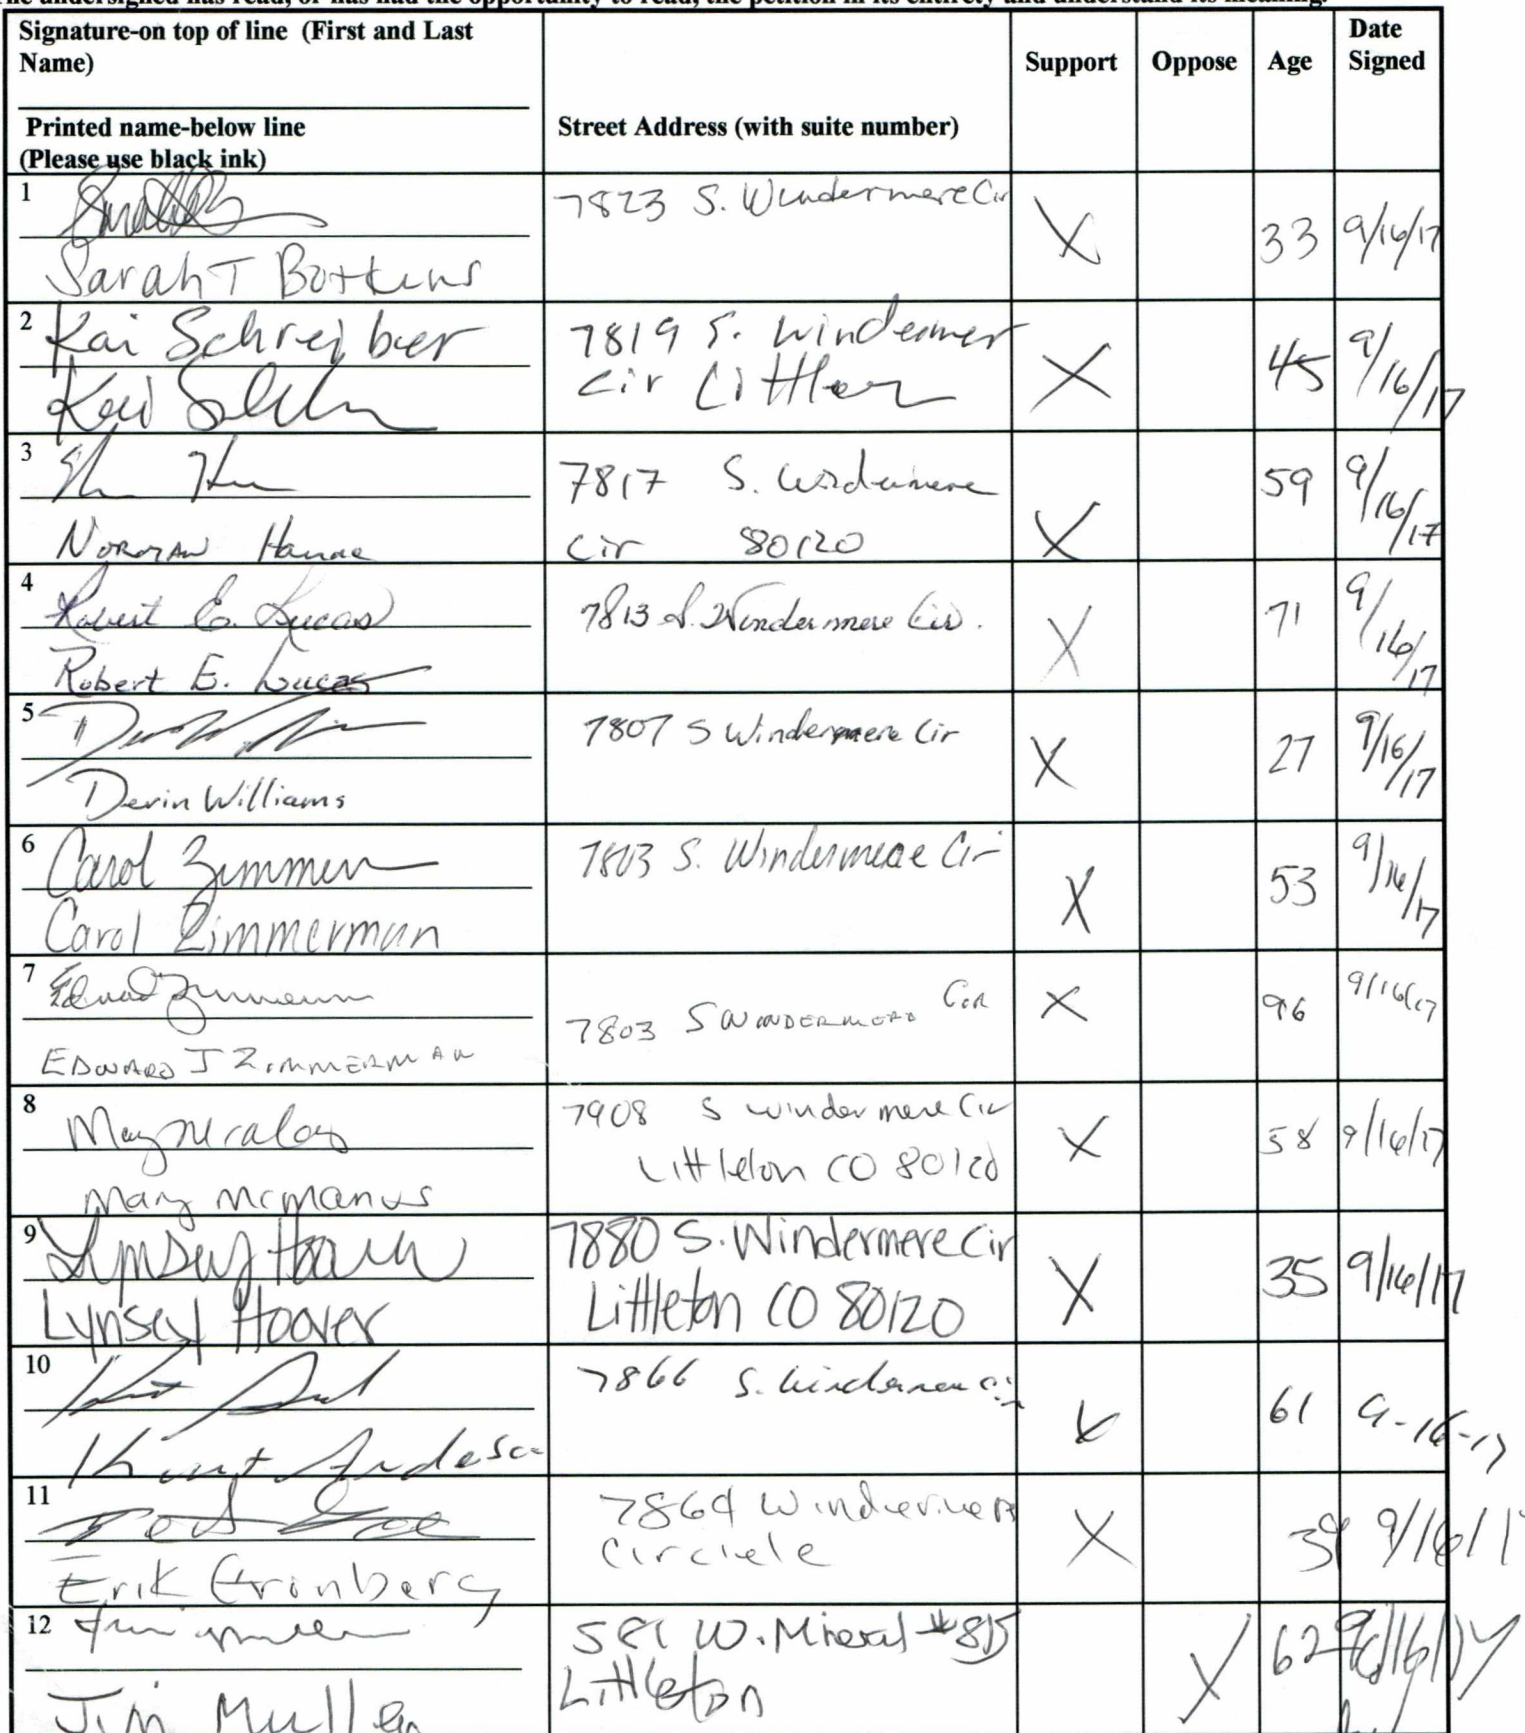 The undersigned has read, or has had the opportunity to read, the petition in its entirety and understand its meaning.
Signature-on top of line (First and Last Name)
Printed name-below line
(Please use black ink)
Street Address (with suite number)
Support
Oppose
Age
Date Signed
1
Sarah T Botkins
7823 S. Windermere Cir
X
33
9/16/17
2 Kai Schreiber
7819 S. Windermer
Cir Littleton
X
45
9/16/17
3
Norman
7817 S. Windermere
Cir 80120
X
59
9/16/17
4 Robert E. Lucas
Robert E. Lucas
7813 S. Windermere Cir.
X
71
9/16/17
5
Devin Williams
7807 S Windermere Cir
X
27
9/16/17
6 Carol Zimmerman
Carol Zimmerman
7803 S. Windermere Cir
X
53
9/16/17
7 Edward Zimmerman
EDWARD J ZIMMERMAN
7803 S WINDERMERE CIR
X
96
9/16/17
8
Mary McManus
7908 S Windermere Cir
Littleton CO 80120
X
58
9/16/17
9 Lynsey Hoover
Lynsey Hoover
7880 S. Windermere Cir
Littleton CO 80120
X
35
9/16/17
10
Kurt
7866 S. Windermere Cir
X
61
9-16-17
11
Erik Gronberg
7864 Windermere
Circle
X
9/16/17
12
Jim Mullen
581 W. Mineral #815
Littleton
X
62
9/16/17